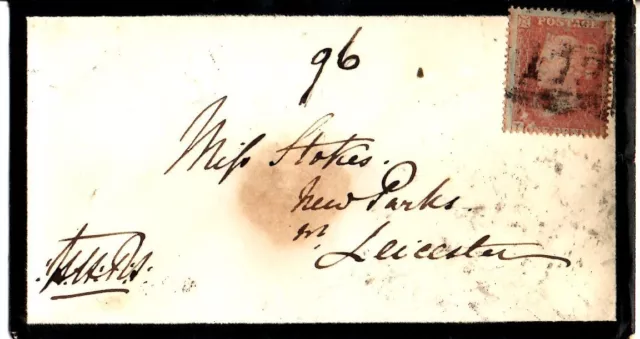 96
POSTAGE
Miss Stokes.
New Parks
nr
Leicester